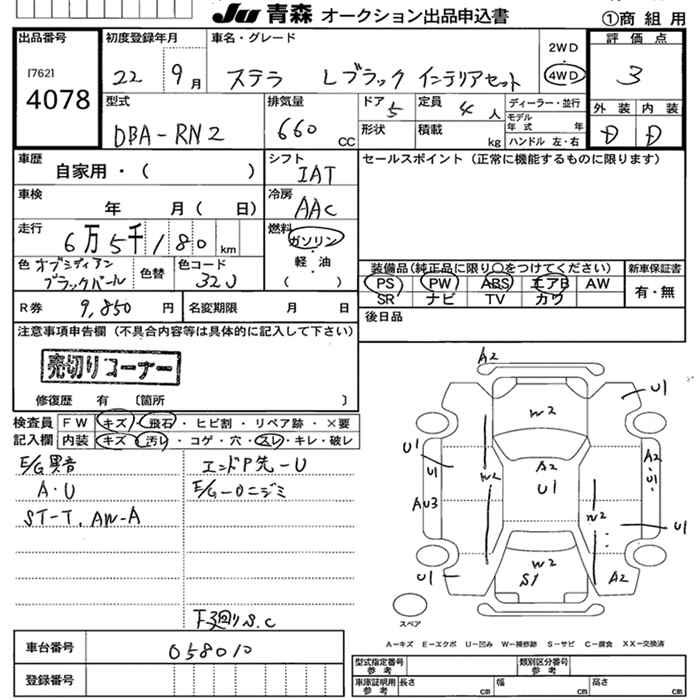 JU 青森 オークション出品申込書
①商組用
出品番号
[762]
4078
初度登録年月
22 9月
車名・グレード
ステラ Lブラック インテリアセット
2WD
4WD
評価点
3
外装 内装
D D
型式
DBA-RN2
排気量
660 CC
ドア 5
定員 4人
形状
積載 kg
ディーラー・並行
モデル年式 年
ハンドル 左・右
車歴
自家用・( )
シフト
IAT
セールスポイント (正常に機能するものに限ります)
車検
年 月( 日)
冷房
AAC
走行
6万5千180km
燃料
ガソリン
軽油
( )
色 オブシディアンブラックパール
色替
色コード
32J
装備品(純正品に限り○をつけてください)
PS PW ABS エアB AW
SR ナビ TV カワ
新車保証書
有・無
R券 9,850円
名変期限 月 日
後日品
注意事項申告欄 (不具合内容等は具体的に記入して下さい)
売切りコーナー
修復歴 有 〔箇所 〕
検査員記入欄
FW キズ・飛石・ヒビ割・リペア跡・×要
内装 キズ・汚レ・コゲ・穴・スレ・キレ・破レ
E/G異音
A・U
ST-T, AW-A
エンドP先-U
E/G-Oニジミ
下廻りS.C
A2
W2
U1
U1
U1
W2
A2
U1
A2・U1
AU3
W2
U1
U1
W2
S1
A2
スペア
A-キズ E-エクボ U-凹み W-補修跡 S-サビ C-腐食 XX-交換済
車台番号
058010
登録番号
型式指定番号 参考
類別区分番号 参考
車庫証明用 参考
長さ cm
幅 cm
高さ cm